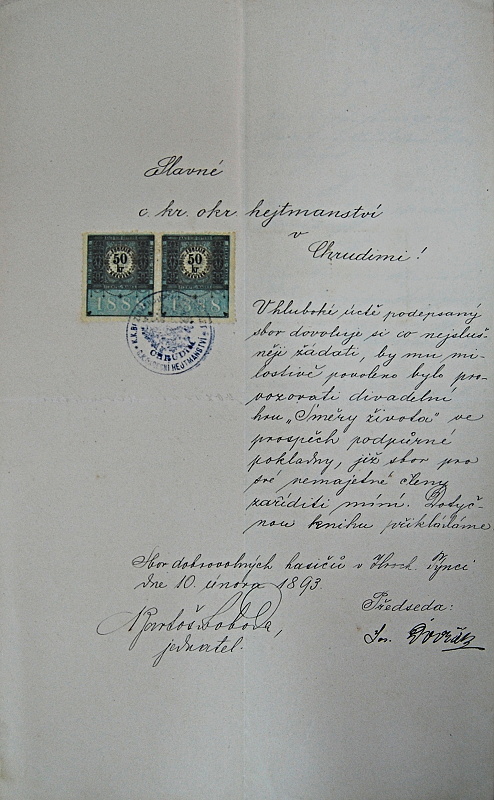 Slavné
c. kr. okr. hejtmanství
v
Chrudimi!
50
kr
50
kr
1881
1881
CHRUDIM
OKRESNÍ HEJTMANSTVÍ
V hluboké úctě podepsaný
sbor dovoluje si co nejsluš-
něji žádati, by mu mi-
lostivě povoleno bylo pro-
vozovati divadelní
hru „Směry života" ve
prospěch podpůrné
pokladny, již sbor pro
své nemajetné členy
zaříditi míní. Dotyč-
nou knihu přikládáme
Sbor dobrovolných hasičů v Hroch. Týnci
dne 10. února 1893.
Předseda:
Svoboda,
Jos. Dvořák
jednatel.